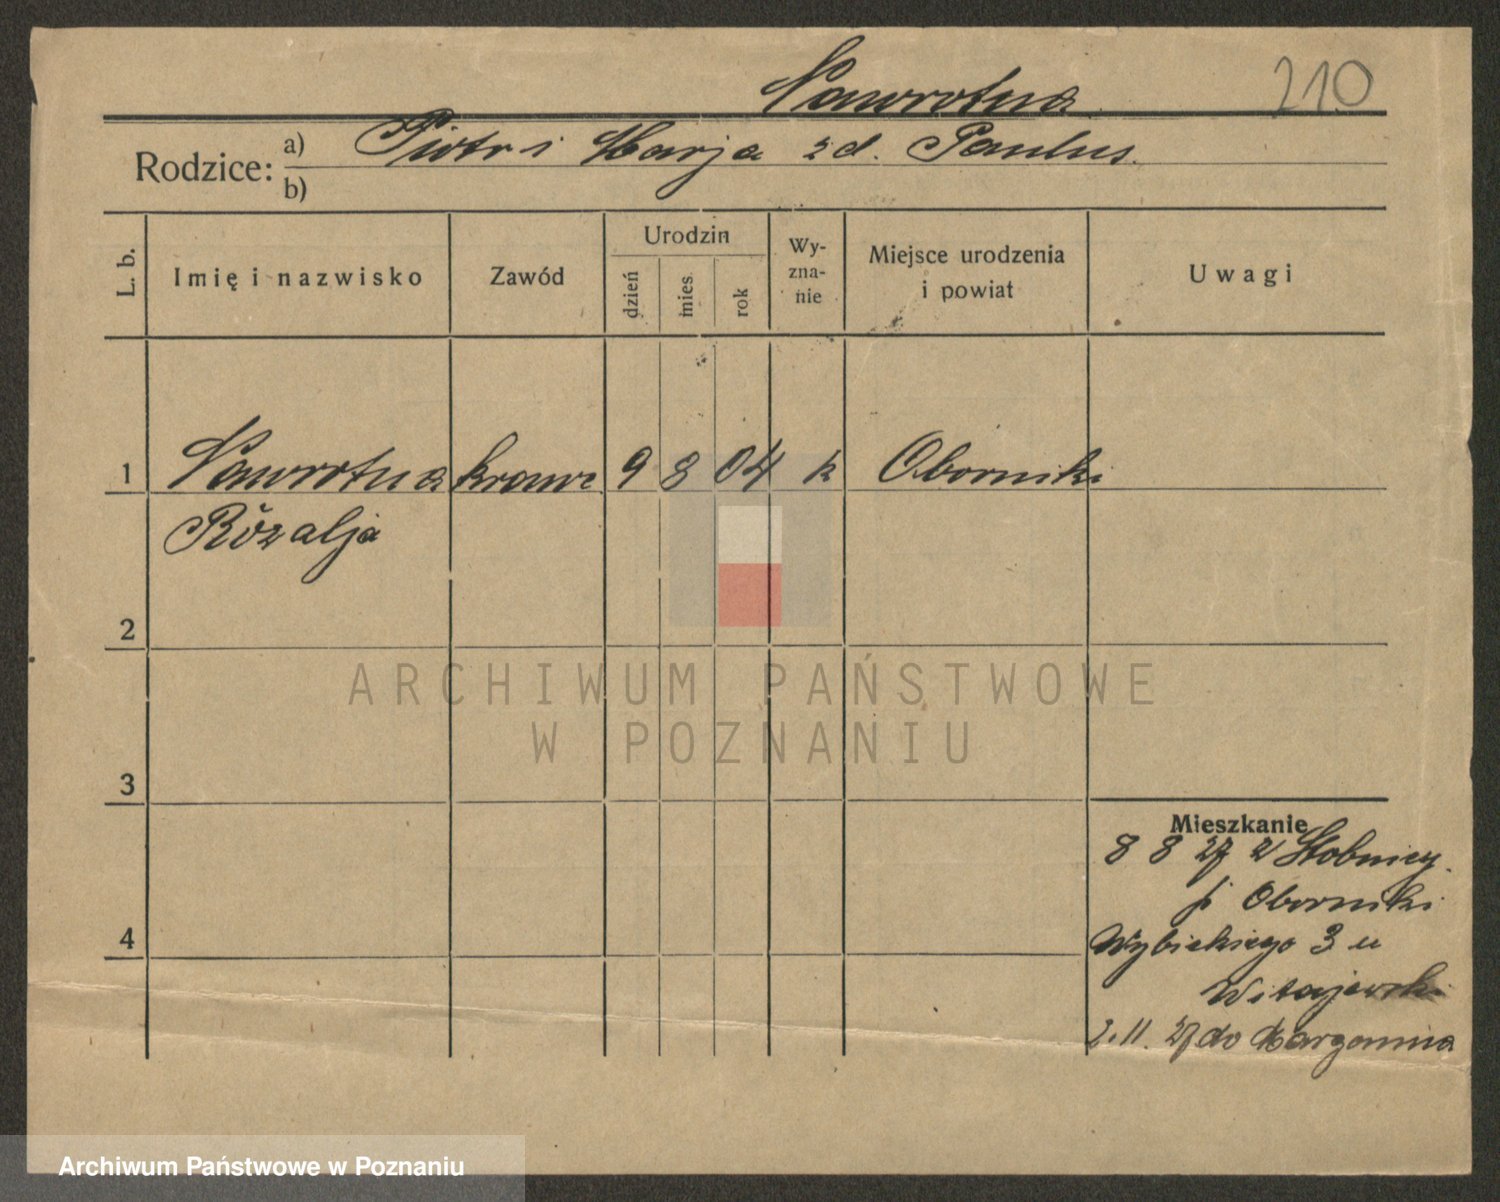 Nawrotna
210
Rodzice: a) Piotr i Marja zd. Paulus.
b)
L. b. Imię i nazwisko Zawód Urodzin dzień mies. rok Wyznanie Miejsce urodzenia i powiat Uwagi
1 Nawrotna krawc 9 8 04 k Oborniki
Rózalja
2
ARCHIWUM PAŃSTWOWE
W POZNANIU
3
4
Mieszkanie
8 8 27 z Stobnicy
p Oborniki
Wybickiego 3 u
Witajewski
2.11.27 do Margonina
Archiwum Państwowe w Poznaniu